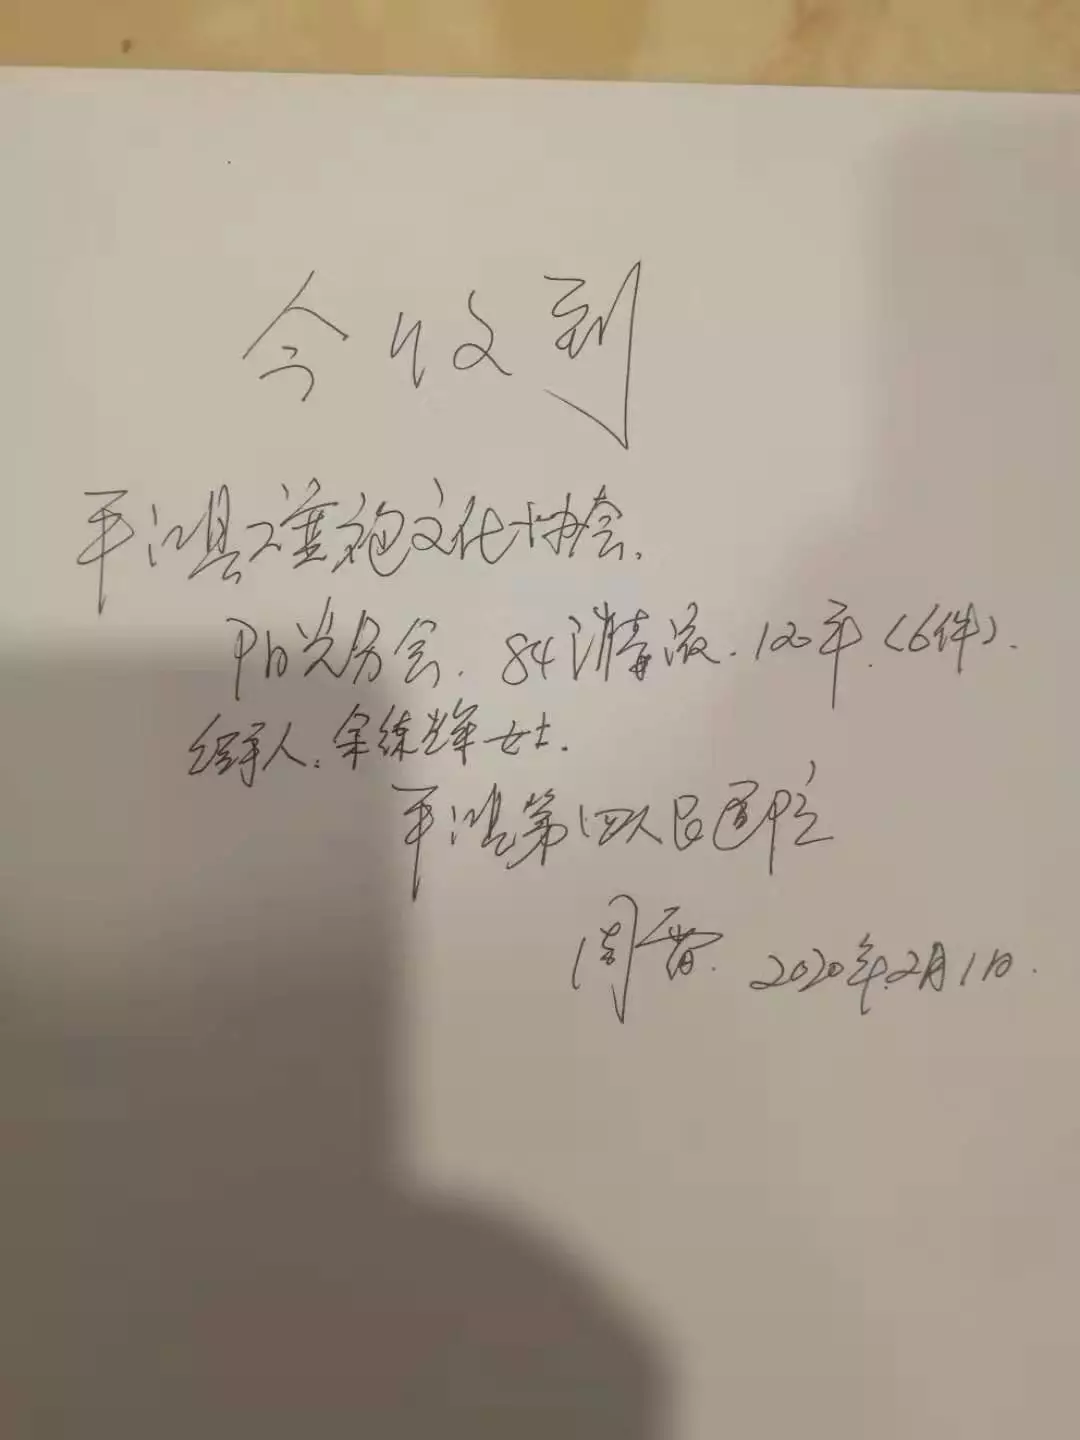 今收到
平江县旗袍文化协会.
阳光分会. 84消毒液. 120斤.(6件).
经手人: 余练辉女士.
平江县第四人民医院
周 2020年2月1日.